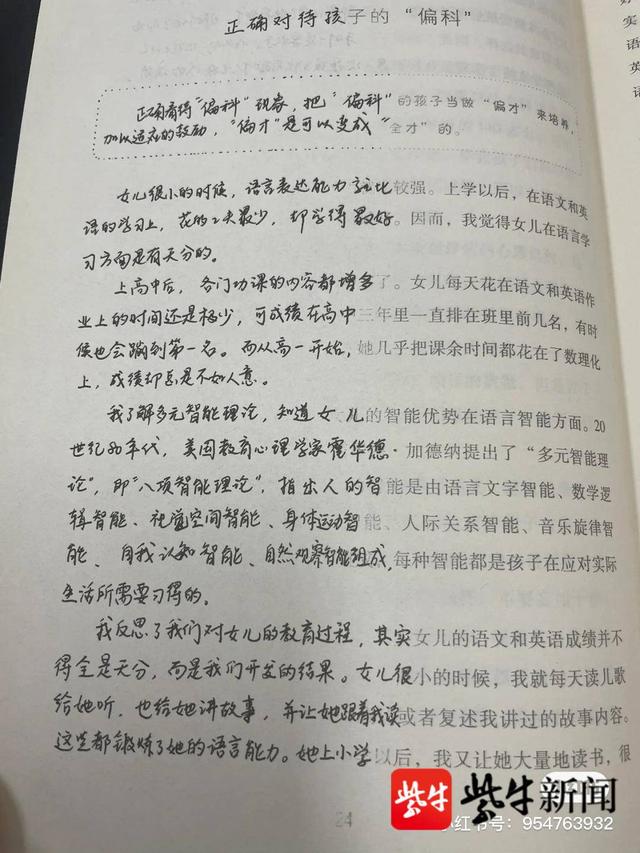 正确对待孩子的“偏科”
正确看待“偏科”现象，把“偏科”的孩子当做“偏才”来培养，
加以适应的鼓励，“偏才”是可以变成“全才”的。
女儿很小的时候，语言表达能力就比较强。上学以后，在语文和英
语的学习上，花的工夫最少，却学得最好。因而，我觉得女儿在语言学
习方面是有天分的。
上高中后，各门功课的内容都增多了。女儿每天花在语文和英语作
业上的时间还是极少，可成绩在高中三年里一直排在班里前几名，有时
候也会蹦到第一名。而从高一开始，她几乎把课余时间都花在了数理化
上，成绩却总是不如人意。
我了解多元智能理论，知道女儿的智能优势在语言智能方面。20
世纪80年代，美国教育心理学家霍华德·加德纳提出了“多元智能理
论”，即“八项智能理论”，指出人的智能是由语言文字智能、数学逻
辑智能、视觉空间智能、身体运动智能、人际关系智能、音乐旋律智
能、自我认知智能、自然观察智能组成，每种智能都是孩子在应对实际
生活所需要习得的。
我反思了我们对女儿的教育过程，其实女儿的语文和英语成绩并不
得全是天分，而是我们开发的结果。女儿很小的时候，我就每天读儿歌
给她听，也给她讲故事，并让她跟着我读或者复述我讲过的故事内容。
这些都锻炼了她的语言能力。她上小学以后，我又让她大量地读书，很
24
紫牛 紫牛新闻
小红书号：954763932
语
英
语